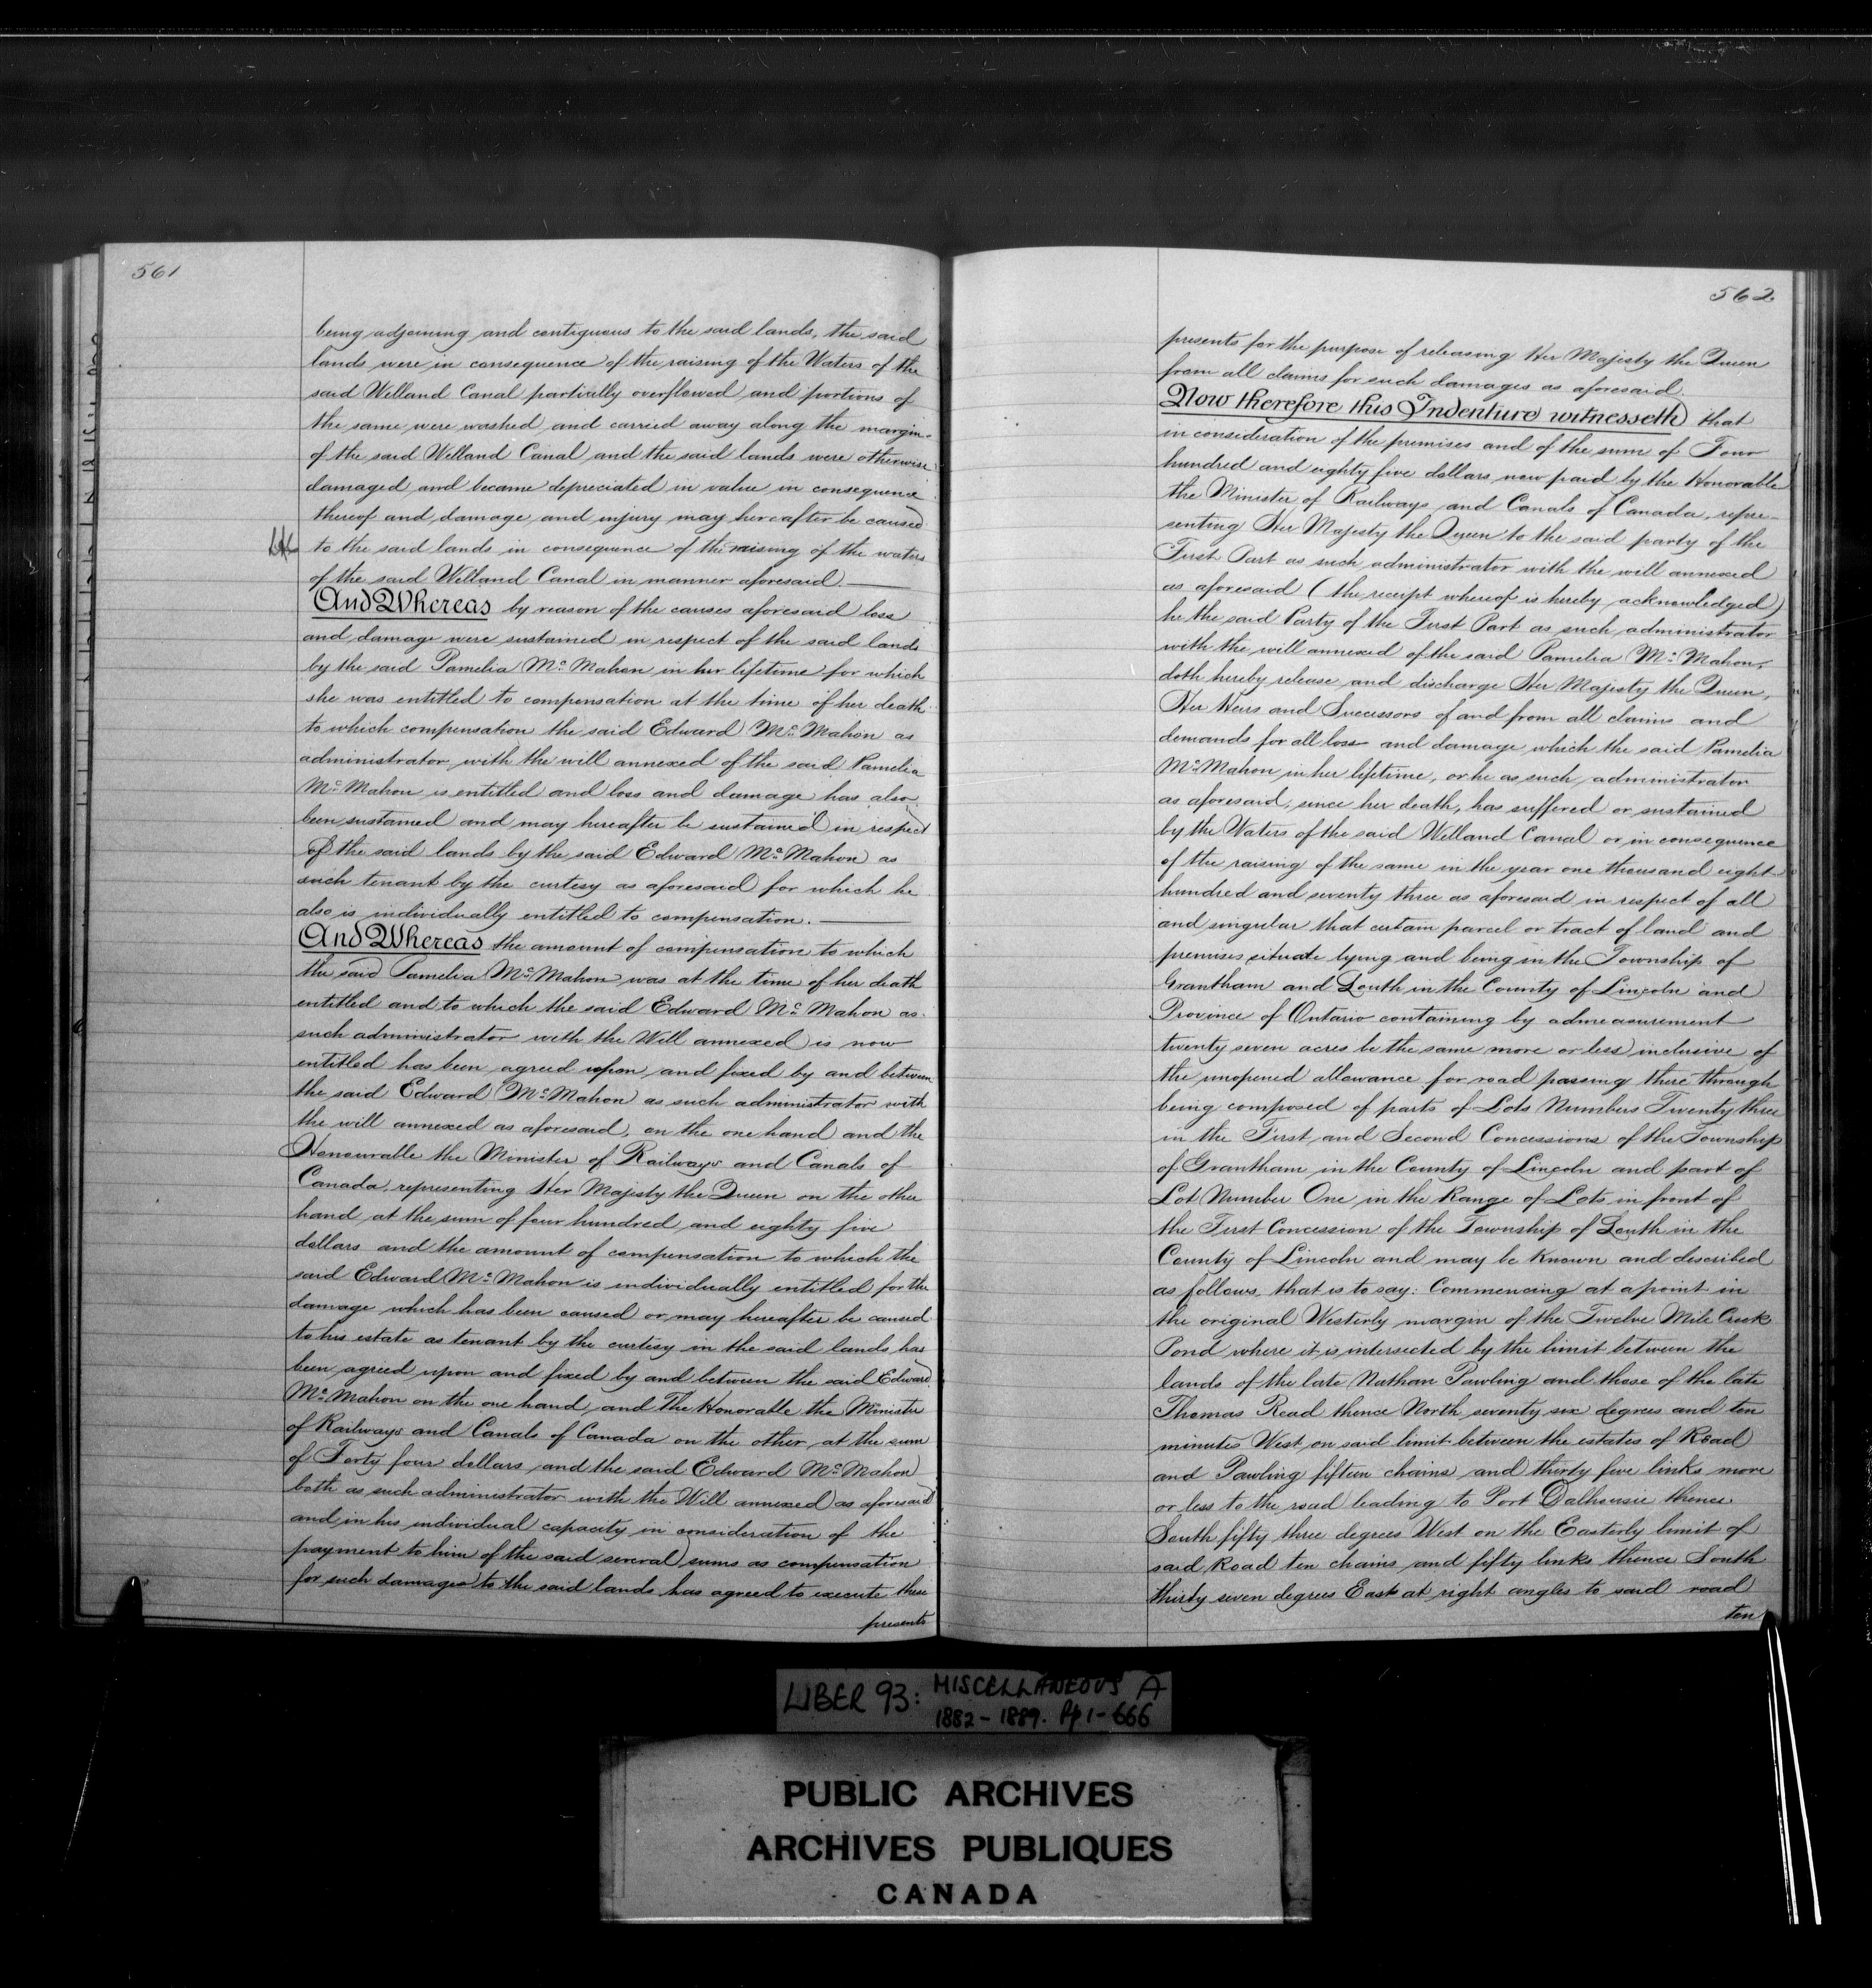 561
being adjoining and contiguous to the said lands, the said
lands were in consequence of the raising of the Waters of the
said Welland Canal partially overflowed and portions of
the same were washed and carried away along the margin
of the said Welland Canal and the said lands were otherwise
damaged and became depreciated in value in consequence
thereof and damage and injury may hereafter be caused
to the said lands in consequence of the raising of the waters
of the said Welland Canal in manner aforesaid
And Whereas by reason of the causes aforesaid loss
and damage were sustained in respect of the said lands
by the said Pamelia Mc Mahon in her lifetime for which
she was entitled to compensation at the time of her death
to which compensation the said Edward Mc Mahon as
administrator with the will annexed of the said Pamelia
Mc Mahon is entitled and loss and damage has also
been sustained and may hereafter be sustained in respect
of the said lands by the said Edward Mc Mahon as
such tenant by the curtesy as aforesaid for which he
also is individually entitled to compensation.
And Whereas the amount of compensation to which
the said Pamelia Mc Mahon was at the time of her death
entitled and to which the said Edward Mc Mahon as
such administrator with the Will annexed is now
entitled has been agreed upon and fixed by and between
the said Edward Mc Mahon as such administrator with
the will annexed as aforesaid, on the one hand and the
Honourable the Minister of Railways and Canals of
Canada, representing Her Majesty the Queen on the other
hand at the sum of four hundred and eighty five
dollars and the amount of compensation to which the
said Edward Mc Mahon is individually entitled for the
damage which has been caused or may hereafter be caused
to his estate as tenant by the curtesy in the said lands has
been agreed upon and fixed by and between the said Edward
Mc Mahon on the one hand and The Honorable the Minister
of Railways and Canals of Canada on the other at the sum
of Forty four dollars and the said Edward Mc Mahon
both as such administrator with the Will annexed as aforesaid
and in his individual capacity in consideration of the
payment to him of the said several sums as compensation
for such damages to the said lands has agreed to execute these
presents
562
presents for the purpose of releasing Her Majesty the Queen
from all claims for such damages as aforesaid.
Now therefore this Indenture witnesseth that
in consideration of the premises and of the sum of Four
hundred and eighty five dollars now paid by the Honorable
the Minister of Railways and Canals of Canada, repre-
senting Her Majesty the Queen to the said party of the
First Part as such administrator with the will annexed
as aforesaid (the receipt whereof is hereby acknowledged)
he the said Party of the First Part as such administrator
with the will annexed of the said Pamelia Mc Mahon,
doth hereby release and discharge Her Majesty the Queen,
Her Heirs and Successors of and from all claims and
demands for all loss and damage which the said Pamelia
Mc Mahon in her lifetime, or he as such administrator
as aforesaid, since her death, has suffered or sustained
by the Waters of the said Welland Canal or in consequence
of the raising of the same in the year one thousand eight
hundred and seventy three as aforesaid in respect of all
and singular that certain parcel or tract of land and
premises situate lying and being in the Township of
Grantham and Louth in the County of Lincoln and
Province of Ontario containing by admeasurement
twenty seven acres be the same more or less inclusive of
the unopened allowance for road passing there through
being composed of parts of Lots Numbers Twenty three
in the First and Second Concessions of the Township
of Grantham in the County of Lincoln and part of
Lot Number One in the Range of Lots in front of
the First Concession of the Township of Louth in the
County of Lincoln and may be Known and described
as follows, that is to say: Commencing at a point in
the original Westerly margin of the Twelve Mile Creek
Pond where it is intersected by the limit between the
lands of the late Nathan Pawling and those of the late
Thomas Read thence North seventy six degrees and ten
minutes West on said limit between the estates of Read
and Pawling fifteen chains and thirty five links more
or less to the road leading to Port Dalhousie thence
South fifty three degrees West on the Easterly limit of
said Road ten chains and fifty links thence South
thirty seven degrees East at right angles to said road
ten
LIBER 93: MISCELLANEOUS A
1882-1889. Pp 1-666
PUBLIC ARCHIVES
ARCHIVES PUBLIQUES
CANADA